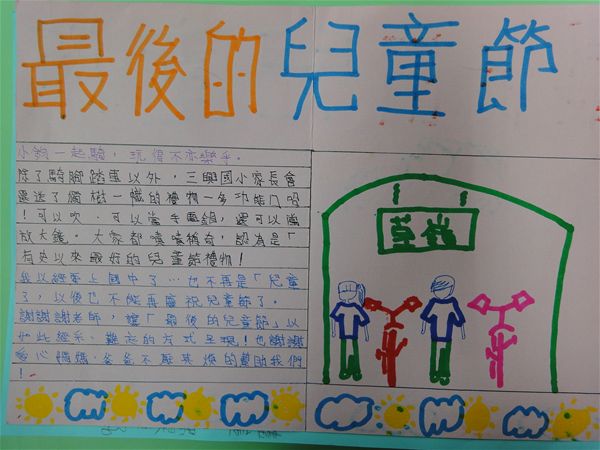 最後的兒童節
小鎮一起騎，玩得不亦樂乎。
除了騎腳踏車以外，三興國小家長會
還送了獨樹一幟的禮物—多功能口哨
！可以吹、可以當手電筒，還可以當
放大鏡。大家都嘖嘖稱奇，認為是「
有史以來最好的兒童節禮物！
我以經要上國中了…也不再是「兒童
了，以後也不能再慶祝兒童節了。
謝謝謝老師，讓「最後的兒童節」以
如此經系、難忘的方式呈現！也謝謝
愛心媽媽、爸爸不厭其煩的幫助我們
！
草嶺